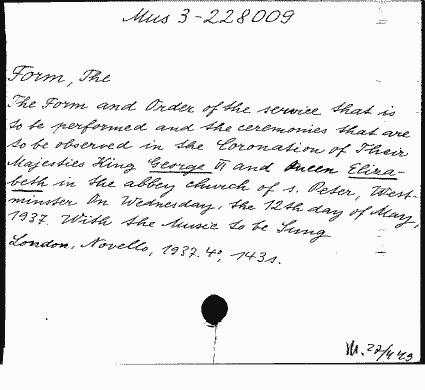 Mus 3-228009
Form, The
The Form and Order of the service that is
to be performed and the ceremonies that are
to be observed in the Coronation of Their
Majesties King George VI and Queen Eliza-
beth in the abbey church of s. Peter, West-
minster On Wednesday, the 12th day of May,
1937. With the Music to be Sung
London, Novello, 1937. 4°, 143s.